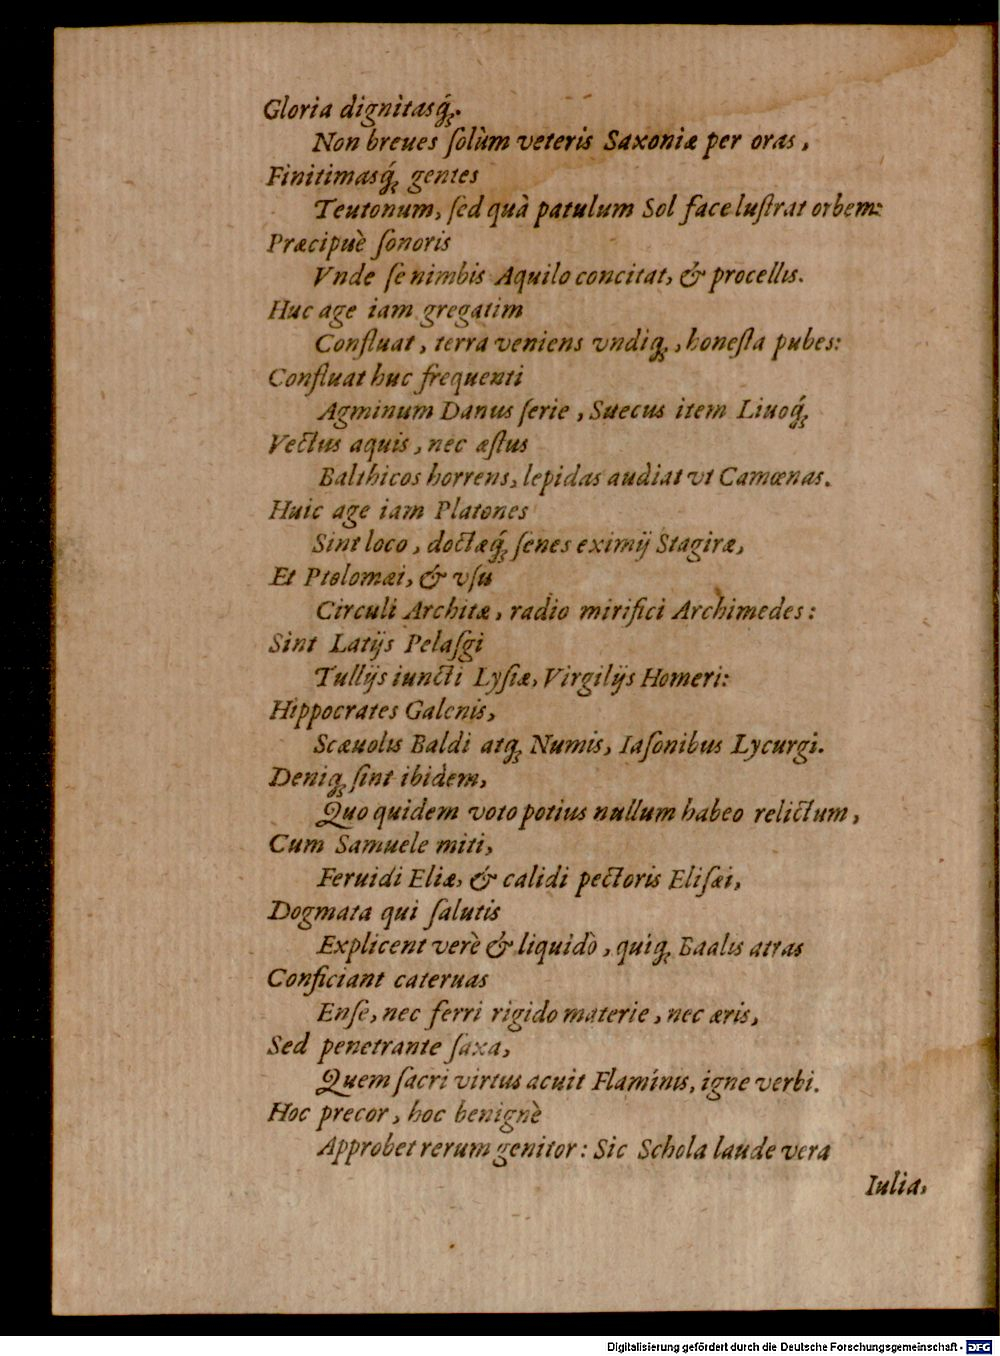 Gloria dignitasq́;.
Non breues ſolùm veteris Saxoniæ per oras,
Finitimasq́; gentes
Teutonum, ſed quà patulum Sol face luſtrat orbem:
Præcipuè ſonoris
Vnde ſe nimbis Aquilo concitat, & procellis.
Huc age iam gregatim
Confluat, terra veniens vndiq;, honeſta pubes:
Confluat huc frequenti
Agminum Danus ſerie, Suecus item Liuoq́;
Vectus aquis, nec æſtus
Balthicos horrens, lepidas audiat vt Camœnas.
Huic age iam Platones
Sint loco, doctæq́; ſenes eximij Stagiræ,
Et Ptolomæi, & vſu
Circuli Architæ, radio mirifici Archimedes:
Sint Latijs Pelaſgi
Tullijs iuncti Lyſiæ, Virgilijs Homeri:
Hippocrates Galenis,
Scæuolis Baldi atq; Numis, Iaſonibus Lycurgi.
Deniq; ſint ibidem,
Quo quidem voto potius nullum habeo relictum,
Cum Samuele miti,
Feruidi Eliæ, & calidi pectoris Eliſæi,
Dogmata qui ſalutis
Explicent verè & liquidò, quiq; Baalis atras
Conficiant cateruas
Enſe, nec ferri rigido materie, nec æris,
Sed penetrante ſaxa,
Quem ſacri virtus acuit Flaminis, igne verbi.
Hoc precor, hoc benignè
Approbet rerum genitor: Sic Schola laude vera
Iulia,
Digitalisierung gefördert durch die Deutsche Forschungsgemeinschaft - DFG